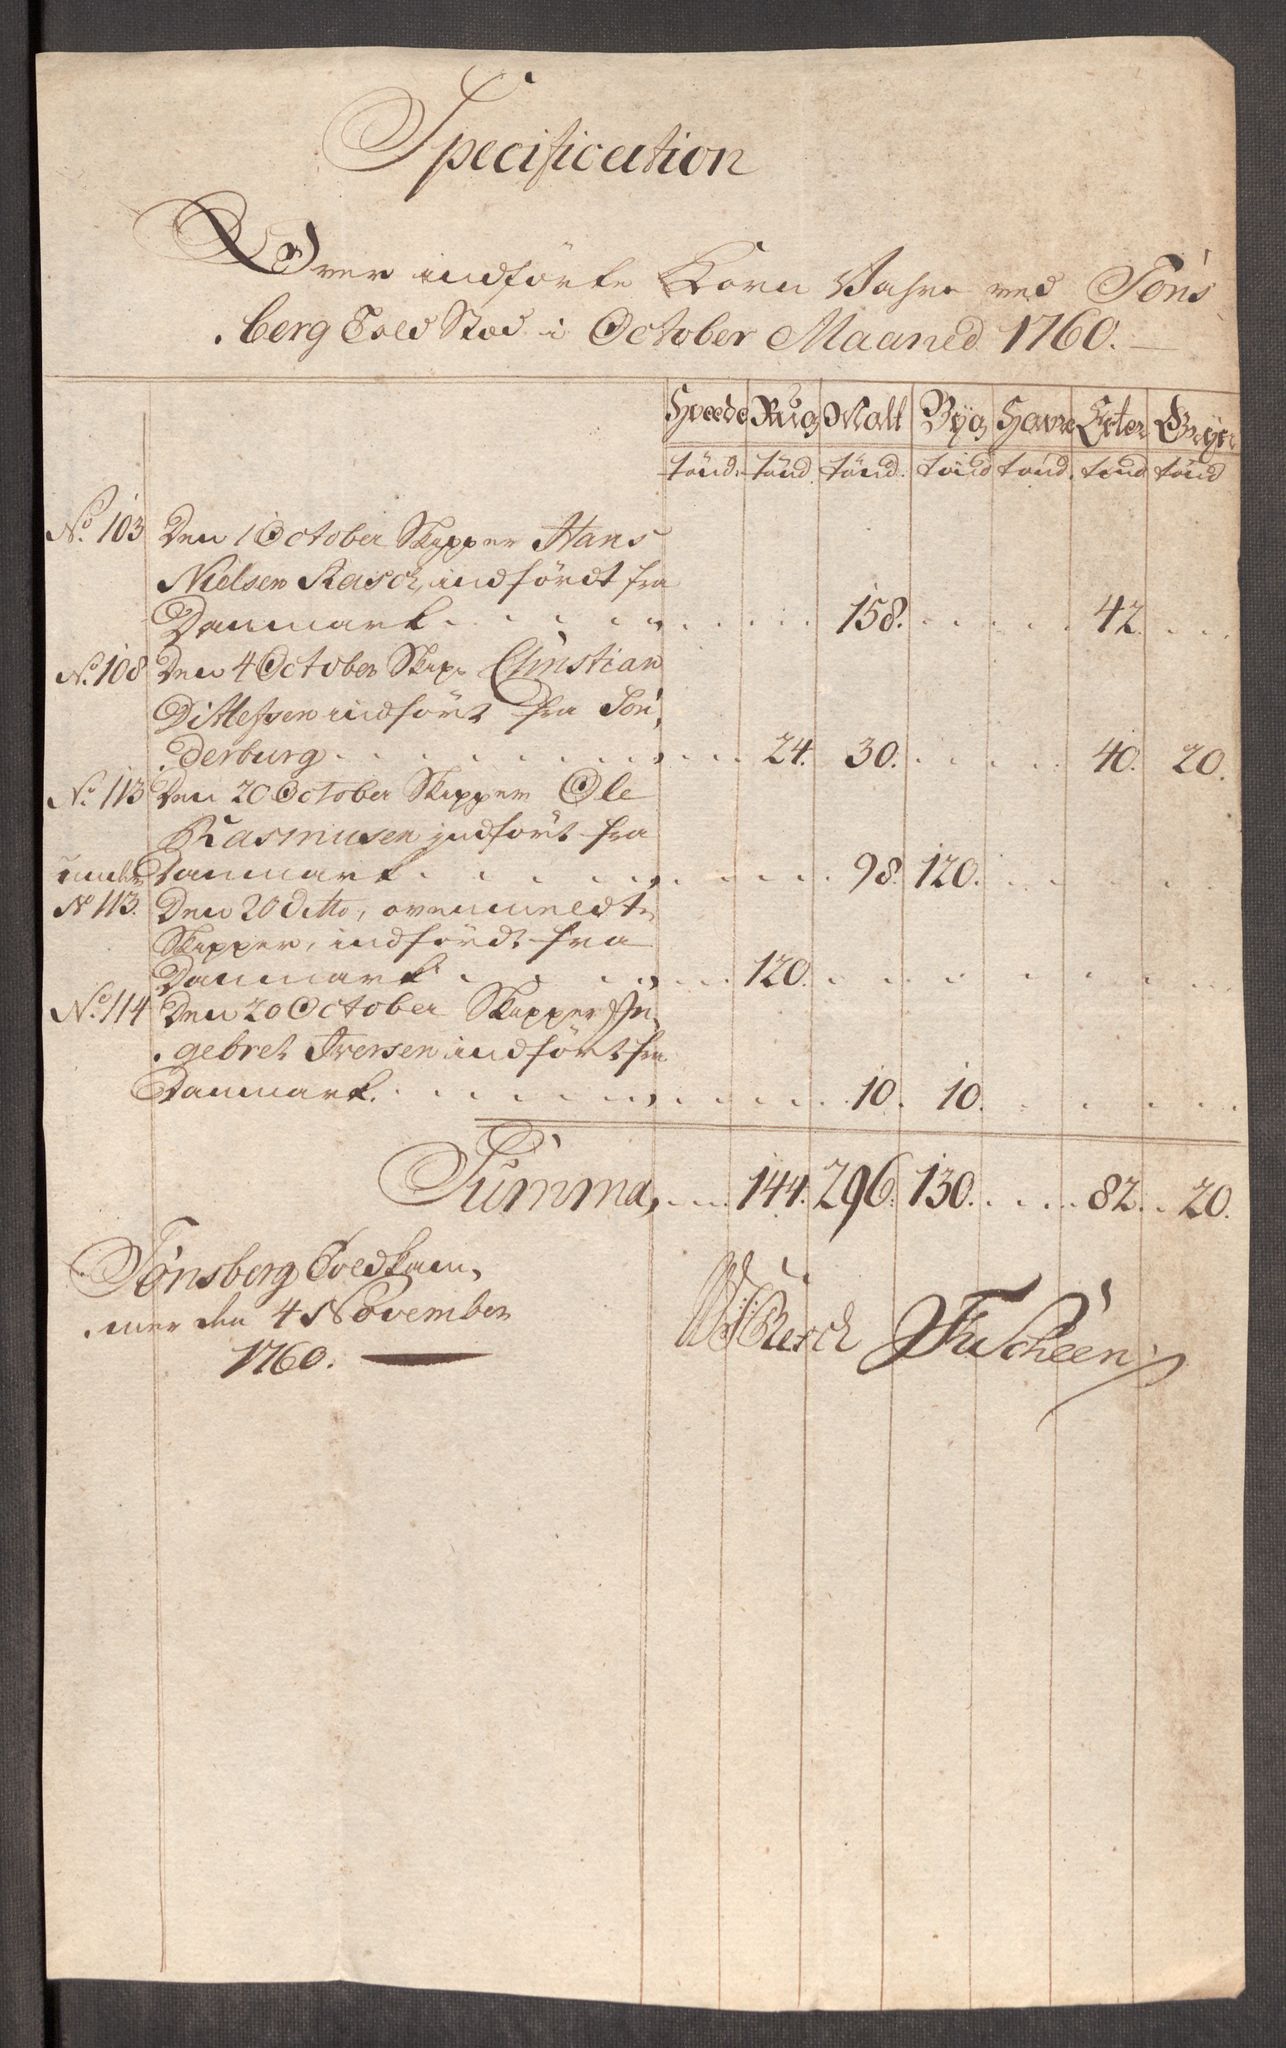 Specification
Over indførte Korn Vahre ved Tøns
berg Told Stæd i October Maaned 1760.
Hvede Rug Malt Byg Havre Erter Gryn
tönd. tönd. tönd. tönd tönd. tönd tönd
No. 103 Den 1 October Skipper Hans
Nielsen Rasch, indfördt fra
Danmark . . . 158. . . . 42. . .
No. 108 Den 4 October Skip. Christian
Ditlefsen indført fra Søn,
derburg . . . 24. 30. . . . 40. 20.
No. 113 Den 20 October Skipper Ole
Rasmusen indført fra
Danmark . . . 98. 120. . . .
under
No 113. Den 20 Ditto, ovenmeldte
Skipper, indfördt fra
Danmark . . . 120. . . .
No. 114 Den 20 October Skipper In,
gebret Iversen indført fra
Danmark. . . . 10. 10. . . .
Summa, . . 144. 296. 130. . . . 82. . 20.
Tønsberg Toldkam,
mer den 4 November
1760.